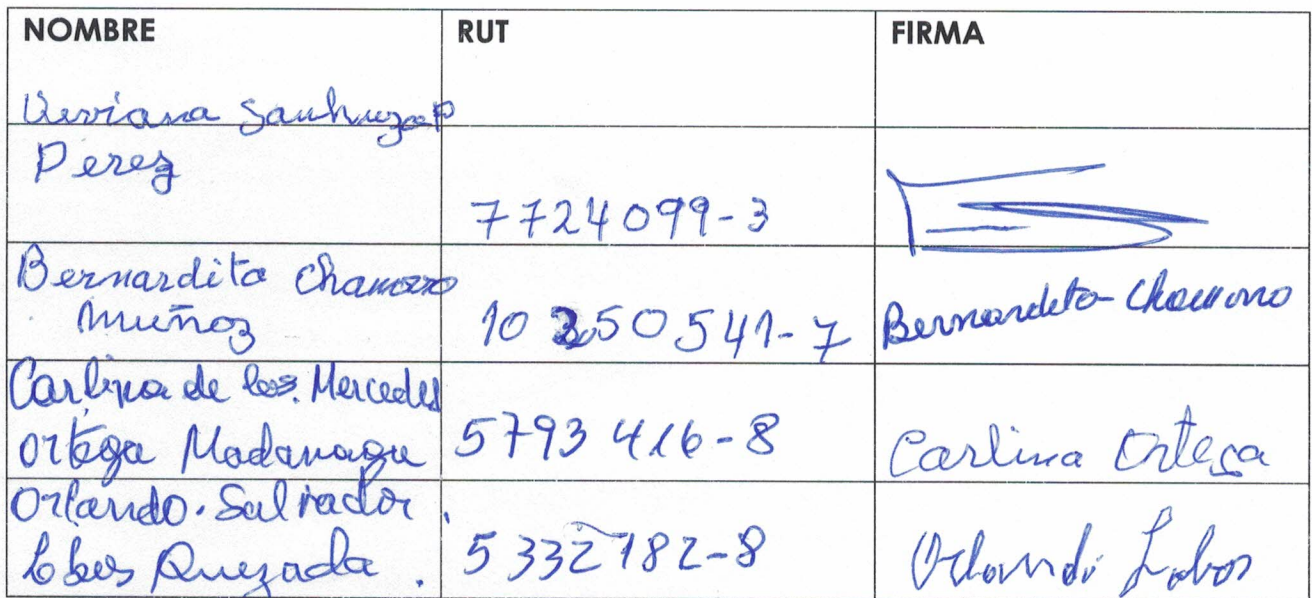 NOMBRE RUT FIRMA
Viviana Sanhueza P
Perez
7724099-3
Bernardita Chamorro
Muñoz
10350541-7 Bernardita-Chamorro
Carlina de las Mercedes
Ortega 5793416-8 Carlina Ortega
Orlando. Salvador.
Lobos Quezada. 5332782-8 Orlando Lobos